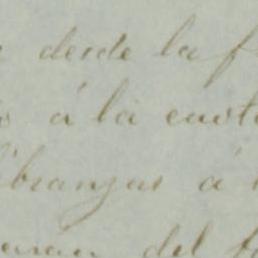 desde la f
á la custo
branzas á
del